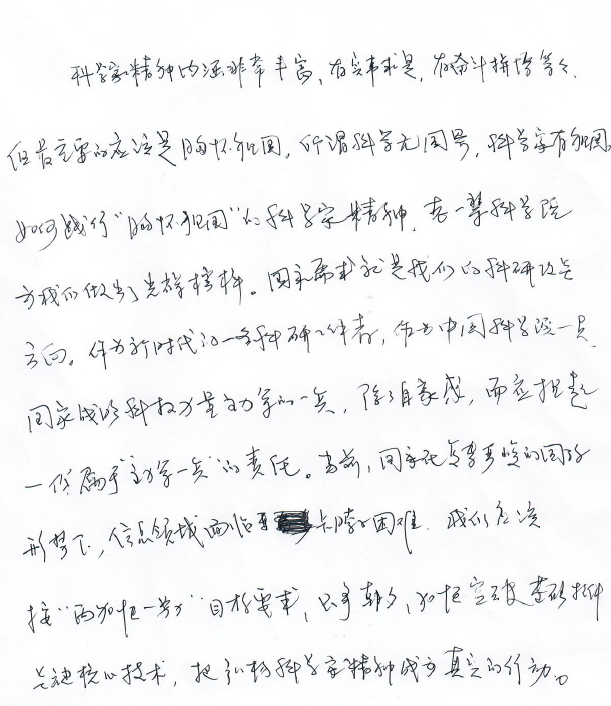 科学家精神内涵非常丰富，有实事求是，有奋斗拼搏等等，
但最主要的应该是胸怀祖国，所谓科学无国界，科学家有祖国。
如何践行“胸怀祖国”的科学家精神，老一辈科学院
为我们做出了光辉榜样。国家需求就是我们的科研攻关
方向。作为新时代的一名科研工作者，作为中国科学院一员
国家战略科技力量主力军的一员，除了自豪感，而应担起
一份属于“主力军一员”的责任。当前，国家在复杂严峻的国际
形势下，信息领域面临卡脖子困难，我们应该
按“两加快一努力”目标要求，只争朝夕，加快突破基础软件
关键核心技术，把弘扬科学家精神成为真实的行动。